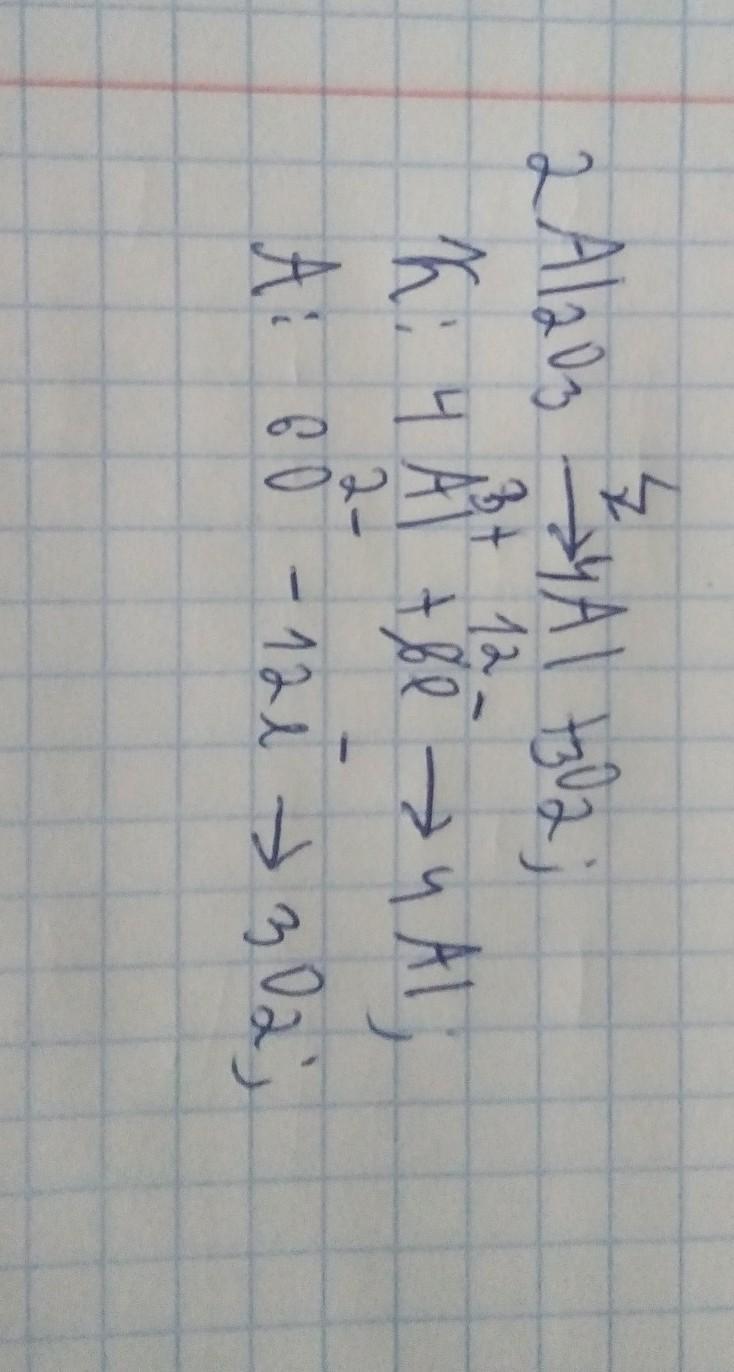 2Al2O3 ⟶ 4Al + 3O2;
K: 4Al³⁺ + 12e⁻ ⟶ 4Al;
A: 6O²⁻ - 12e⁻ → 3O2;